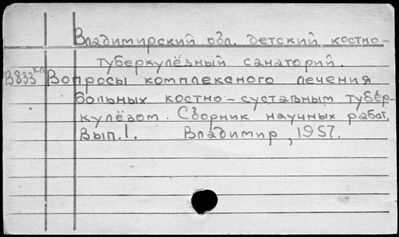 Владимирский обл. детский костно-
туберкулёзный санаторий.
В833кл Вопросы комплексного лечения
больных костно-суставным тубер-
кулёзом. Сборник научных работ,
Вып.1. Владимир, 1957.